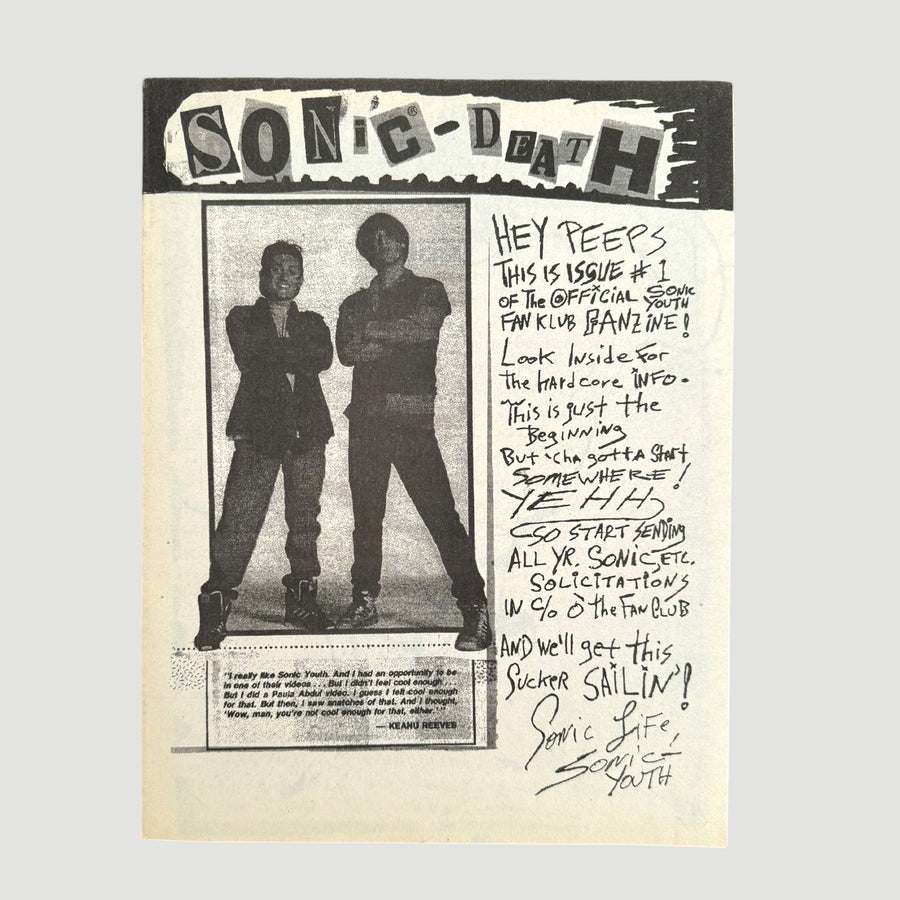 SONiC®-DEATH
HEY PEEPS
THIS IS ISSUE # 1
OF The OFFiCiAL SONIC YOUTH
FAN KLUB FANZiNE!
Look Inside For
the hardcore INFO.
This is just the
Beginning
But 'cha gotta Start
SOMEWHERE!
YEHH
SO START SENDing
ALL YR. SONIC, ETC.
SOLICITATIONS
IN c/o the FAN CLUB
AND we'll get this
Sucker SAILIN'!
Sonic Life,
Sonic-
YOUTH
"I really like Sonic Youth. And I had an opportunity to be
in one of their videos . . . But I didn't feel cool enough . . .
But I did a Paula Abdul video. I guess I felt cool enough
for that. But then, I saw snatches of that. And I thought,
'Wow, man, you're not cool enough for that, either.'"
— KEANU REEVES